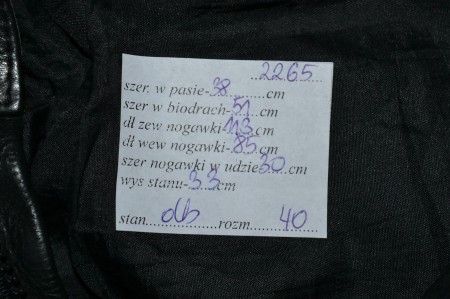 ...2265...
szer. w pasie-38..........cm
szer w biodrach-51....cm
dł zew nogawki-113.cm
dł wew nogawki-85.cm
szer nogawki w udzie30..cm
wys stanu-33cm
stan......db.........rozm......40......